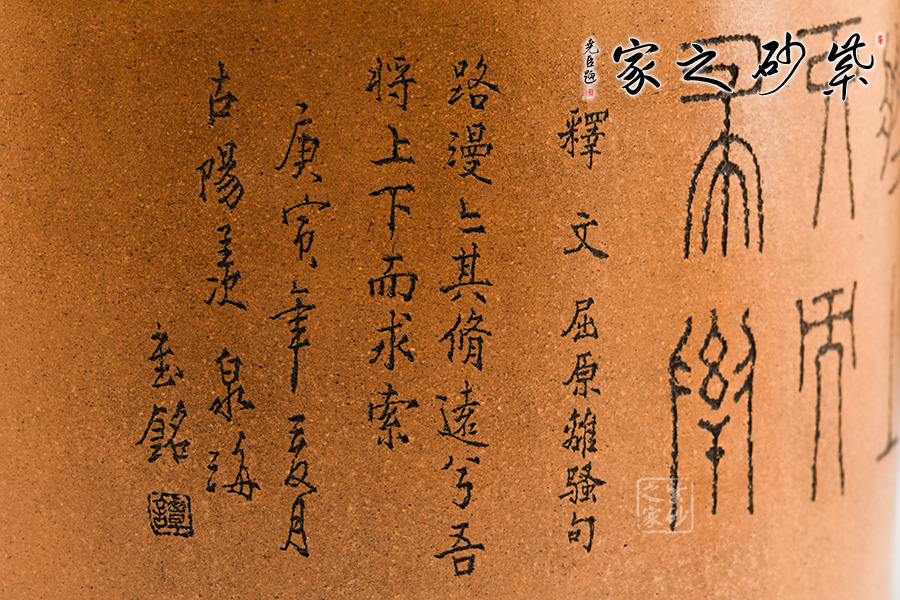 紫砂之家
尧臣题
下而
求索
釋文 屈原離騷句
路漫〻其脩遠兮吾
將上下而求索
庚寅年夏月
古陽羨 泉海
銘
譚
紫砂之家